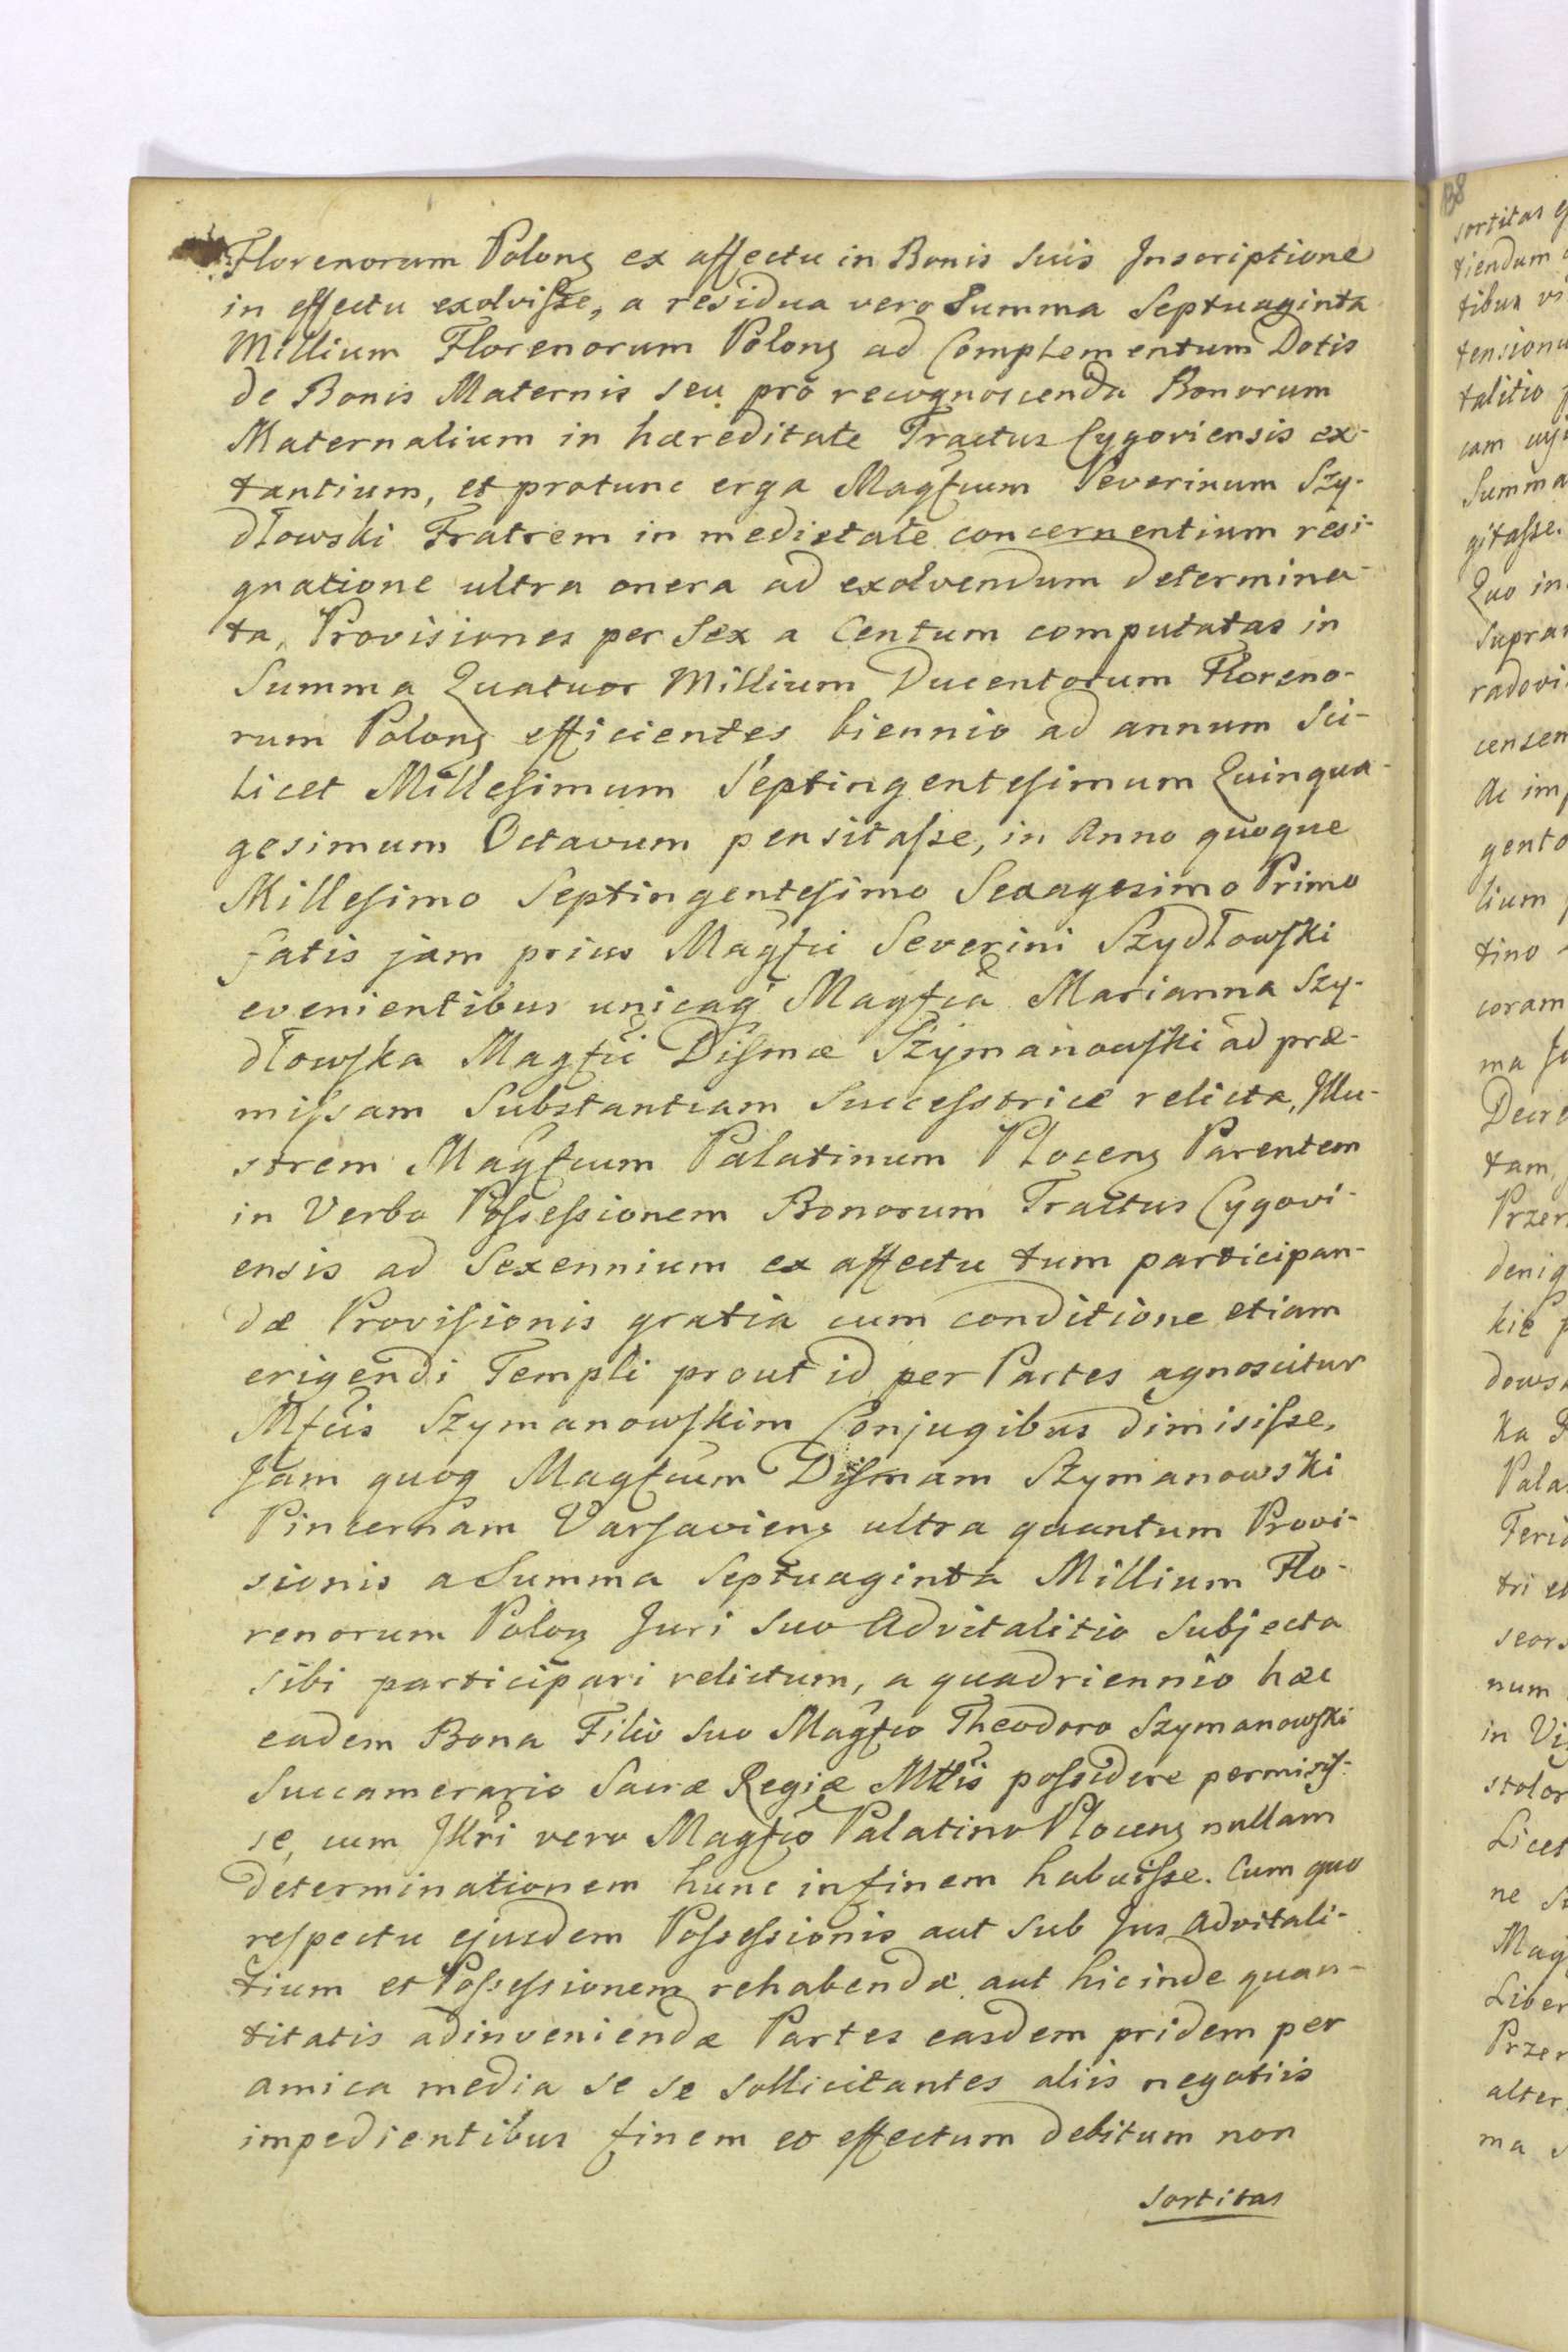 Florenorum Polonȝ ex affectu in Bonis suis Inscriptione
in effectu exolviſse, a residua vero Summa Septuaginta
Millium Florenorum Polonȝ ad Complementum Dotis
de Bonis Maternis seu pro recognoscenda Bonorum
Maternalium in hæreditate Tractus Cygoviensis ex-
tantium, et protunc erga Magfcum Severinum Szy-
dłowski Fratrem in medietate concernentium resi-
gnatione ultra onera ad exolvendum determina-
ta, Provisiones per Sex a Centum computatas in
Summa Quatuor Millium Ducentorum Floreno-
rum Polonȝ efficientes biennio ad annum Sci-
licet Milleſimum Septingenteſimum Quinqua-
gesimum Octavum pensitaſse, in Anno quoque
Milleſimo Septingenteſimo Sexagesimo Primo
fatis jam prius Magfci Severini Szydłowſki
evenientibus unicaq̃ Magfca Marianna Szy-
dłowſka Magfci Diſmæ Szymanowſki ad præ-
miſsam Substantiam Succeſsrice relicta, Illu-
strem Magfcum Palatinum Plocenȝ Parentem
in Verbo Poſseſsionem Bonorum Tractus Cygovi-
ensis ad Sexennium ex affectu tum participan-
dæ Proviſionis gratia cum conditione etiam
erigendi Templi prout id per Partes agnoscitur
Mfcis Szymanowſkim Conjugibus dimisiſse,
Jam quoq Magfcum Diſmam Szymanowski
Pincernam Varſavienȝ ultra quantum Provi-
sionis a Summa Septuaginta Millium Flo-
renorum Polonȝ Juri suo Advitalitio Subjecta
sibi participari relictum, a quadriennio hæc
eadem Bona Filio suo Magfco Theodoro Szymanowſki
Succamerario Sacræ Regiæ Mttis poſsidere permisiſ-
se, cum Illri vero Magfco Palatino Plocenȝ nullam
determinationem hunc in finem habuiſse. Cum quo
reſpectu ejusdem Poſseſsionis aut sub Jus Advitali-
tium et Poſseſsionem rehabendæ aut hicinde quan-
titatis adinveniendæ Partes easdem pridem per
amica media se se sollicitantes aliis negotiis
impedientibus finem et effectum debitum non
sortitas
138
sortitas
tiendum
tibus vi
tensionu
talitio
cam
Summa
gitaſse.
Quo in
Supra
radovi
censen
Ac im
gento
lium
tino
coram
ma
Decre
tam,
Przer
deniq
kie
dows
ka
Pala
Feri
tri et
seors
num
in Vi
stolor
Licet
ne
Mag
Liber
Przer
alter
ma